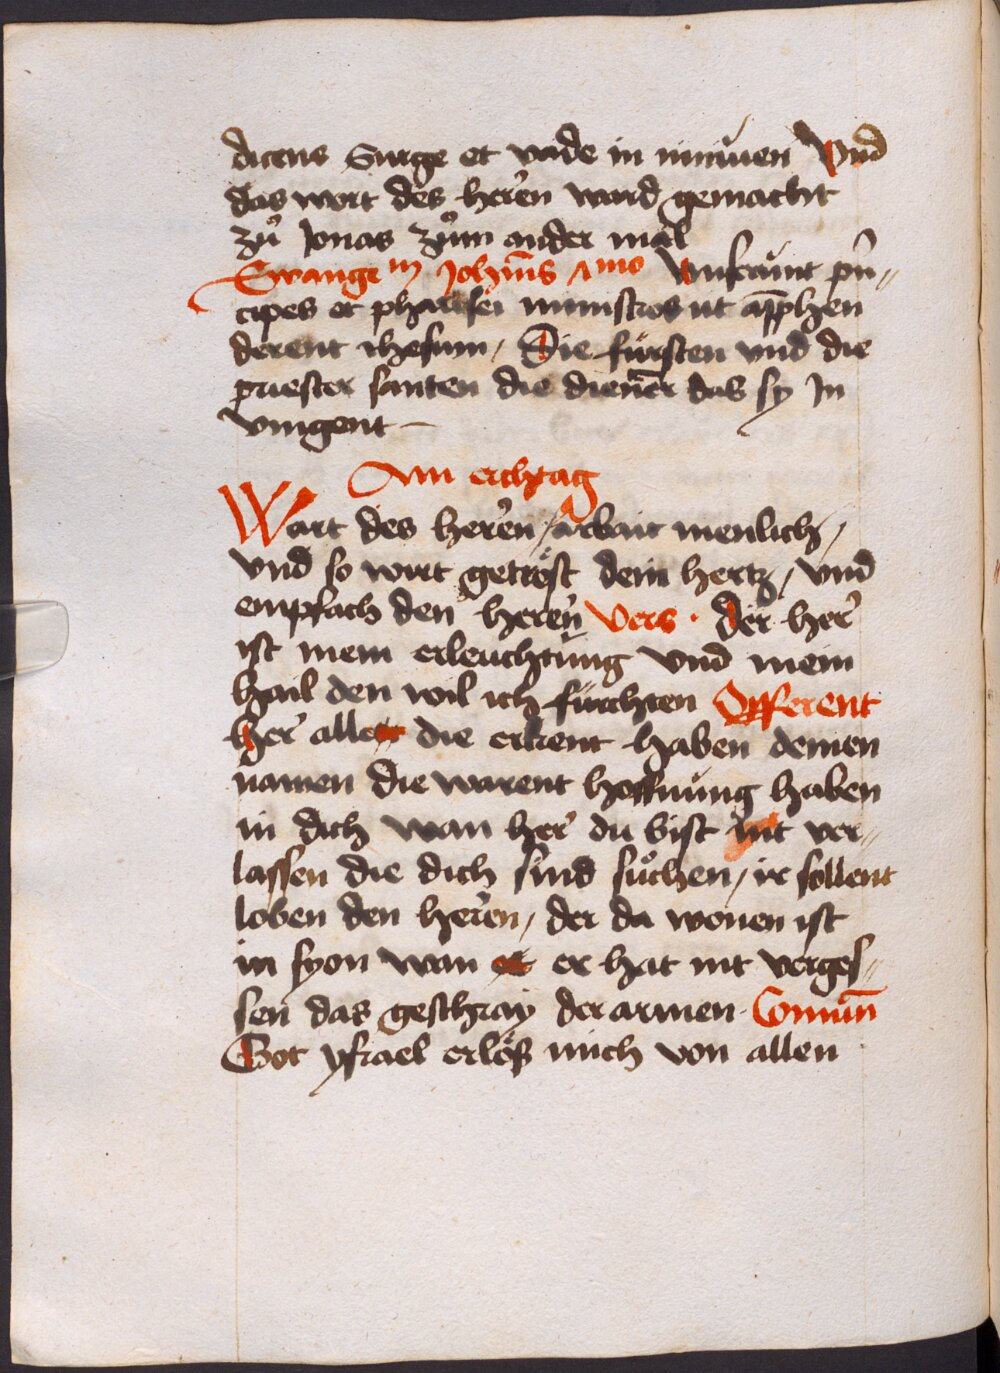 dicens Surge et vade in niniuen Vnd
das wort des heren ward gemacht
zů Jonas zům ander mal
Ewange m Johānis Miserūnt pn̄=
cipes et pharisei ministros ut app̄hen
derent ihesum / Die fürsten vnd die
priester santen die diener das sy In
viengent —
Am erchtag
Wart des heren / arbait menlich /
vnd so wirt getröst dein hertz / vnd
empfach den heren Vers · der her
ist mein erleuchtung vnd mein
hail den wil ich fürchten Offerent
Her alle die erkent haben deinen
namen die warent hoffnung haben
in dich wan her du bist nit ver=
lassen die dich sind sůchen / ir sollent
loben den heren / der da wonen ist
in syon wan er hat nit verges=
sen das geschray der armen · Comun̄
Got ysrael erlöß mich von allen